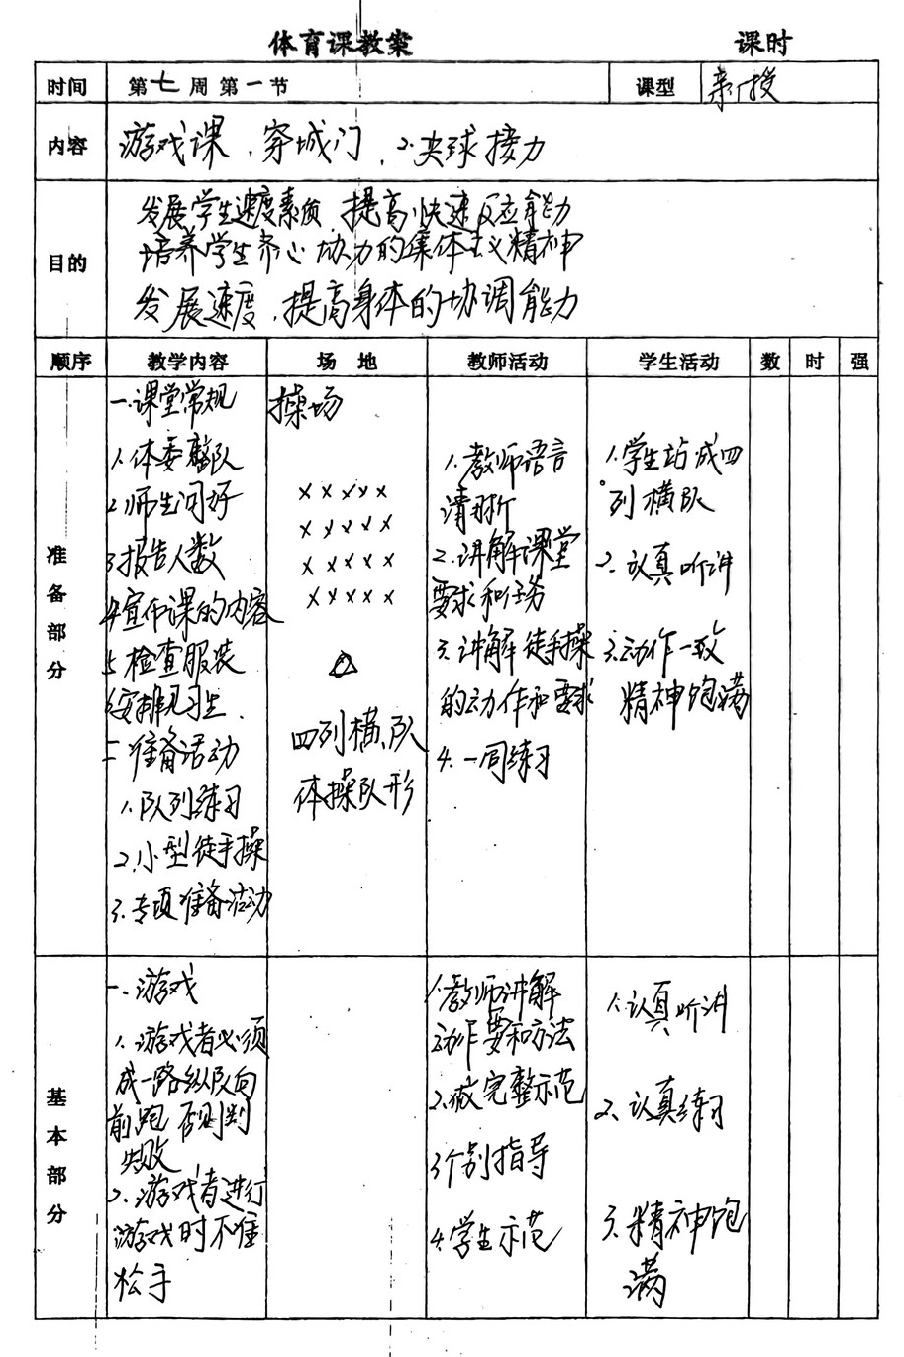 体育课教案 课时
时间 第七周第一节 课型 新授
内容 游戏课、穿城门、2.夹球接力
目的
发展学生速度素质,提高快速反应能力
培养学生齐心协力的集体主义精神
发展速度,提高身体的协调能力
顺序 教学内容 场地 教师活动 学生活动 数 时 强
准备部分
一.课堂常规
1.体委整队
2.师生问好
3.报告人数
4.宣布课的内容
5.检查服装
6.安排见习生.
二.准备活动
1.队列练习
2.小型徒手操
3.专项准备活动
操场
×××××
×××××
×××××
×××××
四列横队
体操队形
1.教师语言
清晰
2.讲解课堂
要求和任务
3.讲解徒手操
的动作和要求
4.一同练习
1.学生站成四
列横队
2.认真听讲
3.动作一致
精神饱满
基本部分
一.游戏
1.游戏者必须
成一路纵队向
前跑,否则判
失败
2.游戏者进行
游戏时不准
松手
1.教师讲解
动作要和方法
2.做完整示范
3个别指导
4.学生示范
1.认真听讲
2、认真练习
3.精神饱
满